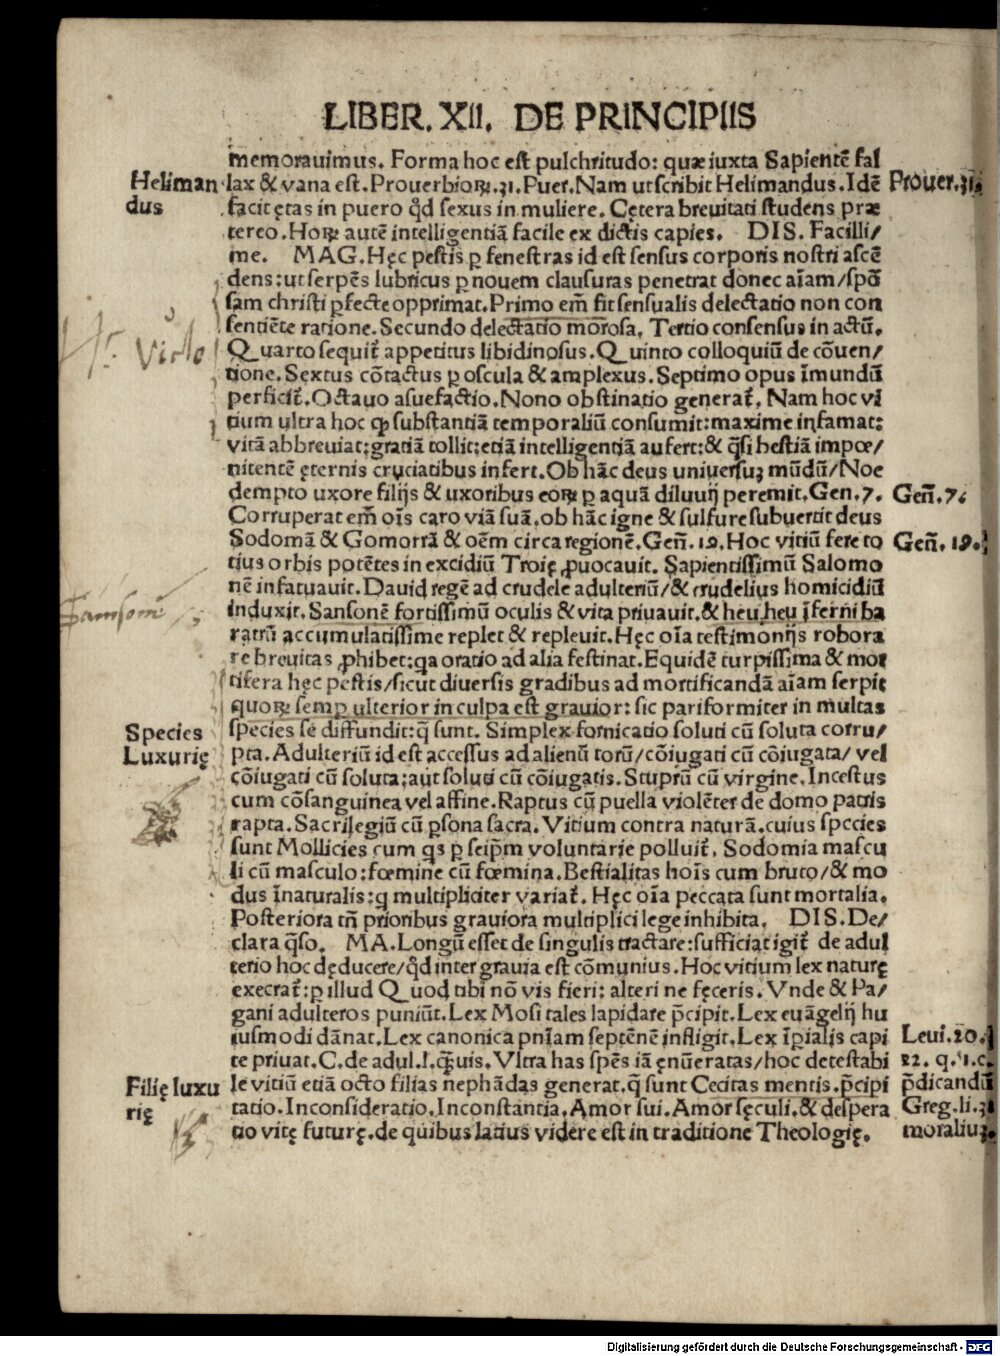 LIBER. XII. DE PRINCIPIIS
memorauimus. Forma hoc est pulchritudo: quæ iuxta Sapientẽ fal
Heliman
dus
lax & vana est. Prouerbioꝝ. 31. Puer. Nam ut scribit Helimandus. Idẽ
Prouer. 31.
facit ętas in puero qd̃ sexus in muliere. Cętera breuitati studens præ
tereo. Hoꝝ autẽ intelligentiã facile ex dictis capies. DIS. Facilli/
me. MAG. Hęc pestis ꝑ fenestras id est sensus corporis nostri ascẽ
dens: ut serpẽs lubricus ꝑ nouem clausuras penetrat donec aĩam/spõ
sam christi ꝑfecte opprimat. Primo em̃ fit sensualis delectatio non con
sentiẽte ratione. Secundo delectatio morosa. Tertio consensus in actũ.
Quarto sequit᷑ appetitus libidinosus. Quinto colloquiũ de cõuen/
tione. Sextus cõtactus ꝑ oscula & amplexus. Septimo opus ĩmundũ
perficit᷑. Octauo asuefactio. Nono obstinatio generat᷑. Nam hoc vi
tium ultra hoc ꝙ substantiã temporaliũ consumit: maxime infamat:
vitã abbreuiat: gratiã tollit: etiã intelligentiã aufert: & q̃si bestiã impœ/
nitentẽ ęternis cruciatibus infert. Ob hãc deus uniuersuꝫ mũdũ/Noe
dempto uxore filijs & uxoribus eoꝝ ꝑ aquã diluuij peremit. Gen. 7.
Geñ. 7.
Corruperat em̃ oĩs caro viã suã. ob hãc igne & sulfure subuertit deus
Sodomã & Gomorrã & oẽm circa regionẽ. Geñ. 19. Hoc vitiũ fere to
Geñ. 19.
tius orbis potẽtes in excidiũ Troię ꝓuocauit. Sapientissimũ Salomo
nẽ infatuauit. Dauid regẽ ad crudele adulteriũ/& crudelius homicidiũ
induxit. Sansonẽ fortissimũ oculis & vita priuauit. & heu heu ĩferni ba
ratrũ accumulatissime replet & repleuit. Hęc oĩa testimonijs robora
re breuitas ꝓhibet: qa oratio ad alia festinat. Equidẽ turpissima & mor
tifera hęc pestis/sicut diuersis gradibus ad mortificandã aĩam serpit
quoꝝ semꝑ ulterior in culpa est grauior: sic pariformiter in multas
Species
Luxurię
species se diffundit: q̃ sunt. Simplex fornicatio soluti cũ soluta corru/
pta. Adulteriũ id est accessus ad alienũ torũ/cõiugati cũ cõiugata/ vel
cõiugati cũ soluta: aut soluti cũ cõiugatis. Stuprũ cũ virgine. Incestus
cum cõsanguinea vel affine. Raptus cũ puella violẽter de domo patris
rapta. Sacrilegiũ cũ ꝑsona sacra. Vitium contra naturã. cuius species
sunt Mollicies cum qs ꝑ seip̃m voluntarie polluit᷑. Sodomia mascu
li cũ masculo: fœmine cũ fœmina. Bestialitas hoĩs cum bruto/& mo
dus ĩnaturalis: q multipliciter variat᷑. Hęc oĩa peccata sunt mortalia.
Posteriora tñ prioribus grauiora multiplici lege inhibita. DIS. De/
clara q̃so. MA. Longũ esset de singulis tractare: sufficiat igit᷑ de adul
terio hoc dęducere/qd̃ inter grauia est cõmunius. Hoc vitium lex naturę
execrat᷑: ꝑ illud Quod tibi nõ vis fieri: alteri ne fęceris. Vnde & Pa/
gani adulteros puniũt. Lex Mosi tales lapidare p̃cipit. Lex euãgelij hu
iusmodi dãnat. Lex canonica pnĩam septẽnẽ infligit. Lex ĩp̃ialis capi
Leui. 20.
te priuat. C. de adul. l. q̃uis. Vltra has spẽs iã ęnũeratas/hoc detestabi
22. q. 1. c.
Filię luxu
rię
le vitiũ etiã octo filias nephãdas generat. q̃ sunt Cecitas mentis. p̃cipi
p̃dicandũ
tatio. Inconsideratio. Inconstantia. Amor sui. Amor sęculi. & despera
Greg. li. 31
tio vitę futurę. de quibus latius videre est in traditione Theologię.
moraliuꝫ.
Samsonẽ
Digitalisierung gefördert durch die Deutsche Forschungsgemeinschaft - DFG